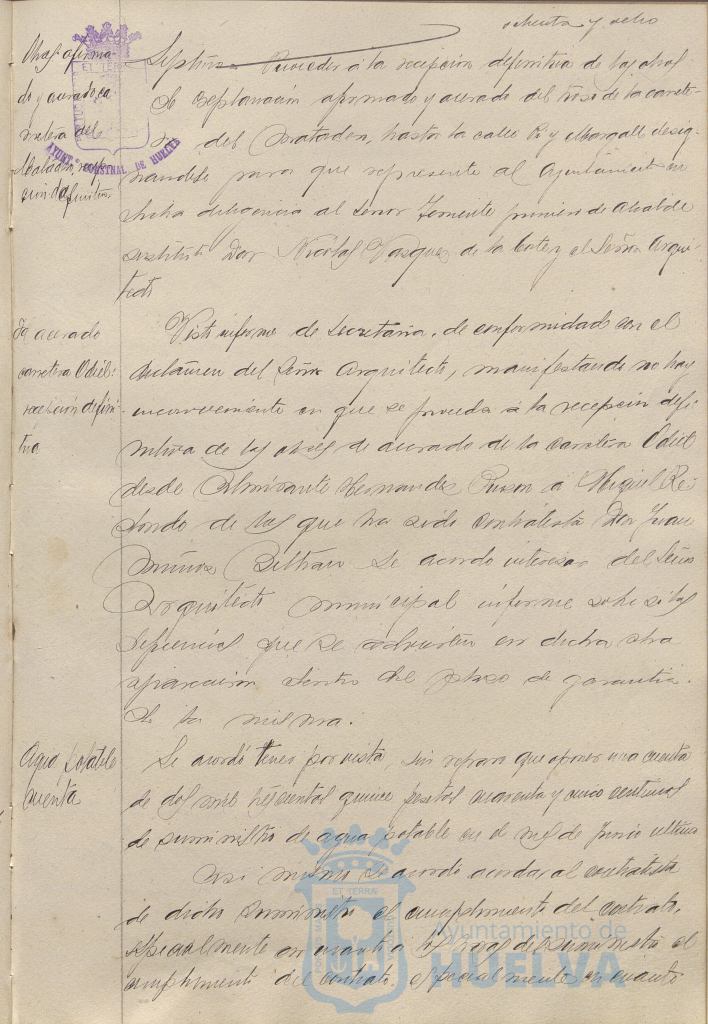 ochenta y ocho
Obras afirma-
do y acerado ca-
rretera del
Matadero, recep-
ción definitiva.
Séptimo Proceder á la recepción definitiva de las obras
de explanación afirmado y acerado del trozo de la carrete-
ra del Matadero, hasta la calle Pi y Margall desig-
nandose para que represente al Ayuntamiento en
dicha diligencia al Señor Teniente primero de Alcalde
sustituto Don Nicolas Vazquez de la Corte y el Señor Arqui-
tecto
Id acerado
carretera Odiel:
recepción defini-
tiva
Visto informe de Secretaría, de conformidad con el
dictamen del Señor Arquitecto, manifestando no hay
inconveniente en que se proceda á la recepción defi-
nitiva de las obras de acerado de la carretera Odiel
desde Almirante Hernandez Pinzon á Miguel Re-
dondo de las que ha sido contratista Don Juan
Muñoz Beltran se acordó interesar del Señor
Arquitecto municipal informe sobre si las
deficiencias que se advierten en dicha obra
aparecieron dentro del plazo de garantia.
de la misma.
Agua potable
cuenta
Se acordó tener por vista, sin reparo que oponer una cuenta
de dos mil trescientas quince pesetas cuarenta y cinco centimos
de suministro de agua potable en el mes de Junio ultimo
Asi mismo se acordo al contratista
de dicho suministro el cumplimiento del contrato,
especialmente en cuanto á las de suministro el
cumplimiento del contrato, especialmente en cuanto
ET TERRÆ
AYUNT. CONSTNAL DE HUELVA
ET TERRÆ
Ayuntamiento de
HUELVA